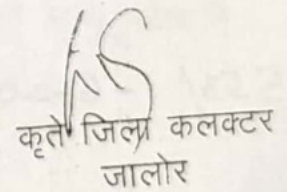 कृते जिला कलक्टर
जालोर